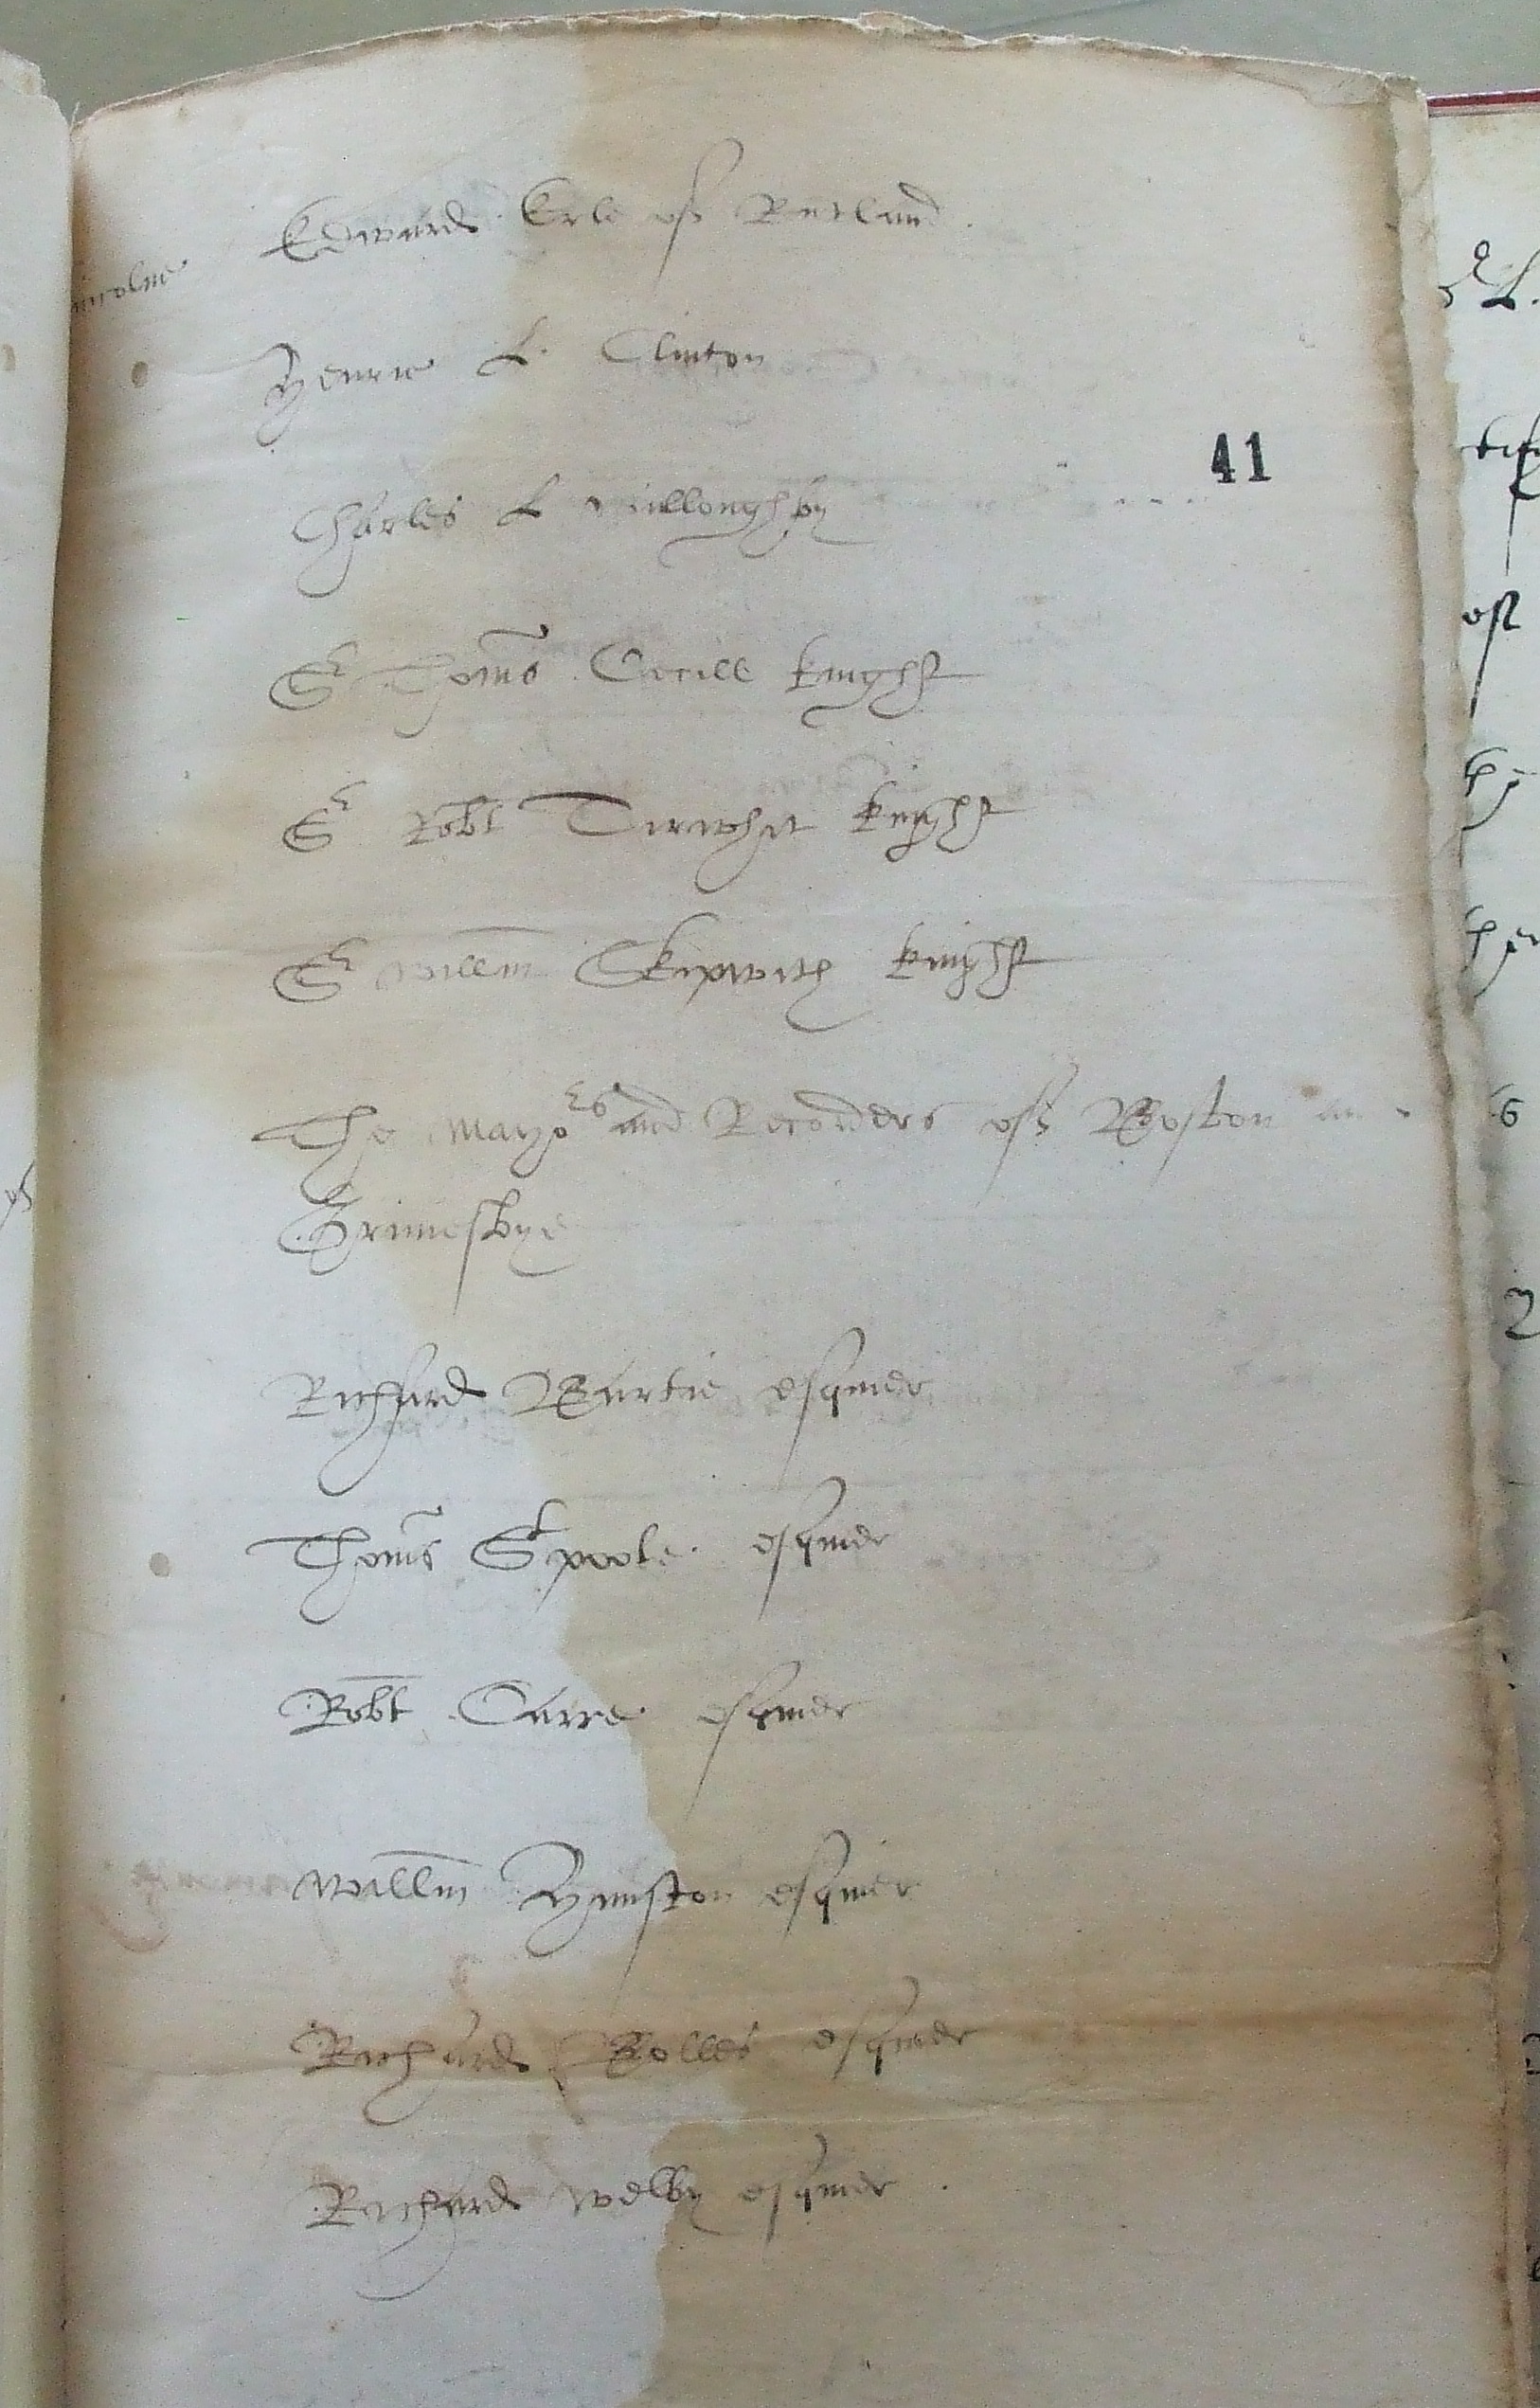 Edward Erle off Rutland.
Henrie L. Clinton
41
Charles L willoughby
Sr Thoms Cecill knight
Sr Robt Tirwhit knight
Sr willm Skipwith knight
The Mayors and Recorders off Boston
Grimesbye
Richard Bartie esquier
Thoms St poole. esquier
Robt Carre esquier
willm Hunston esquier
Richard Bolles esquier
Richard welby esquier